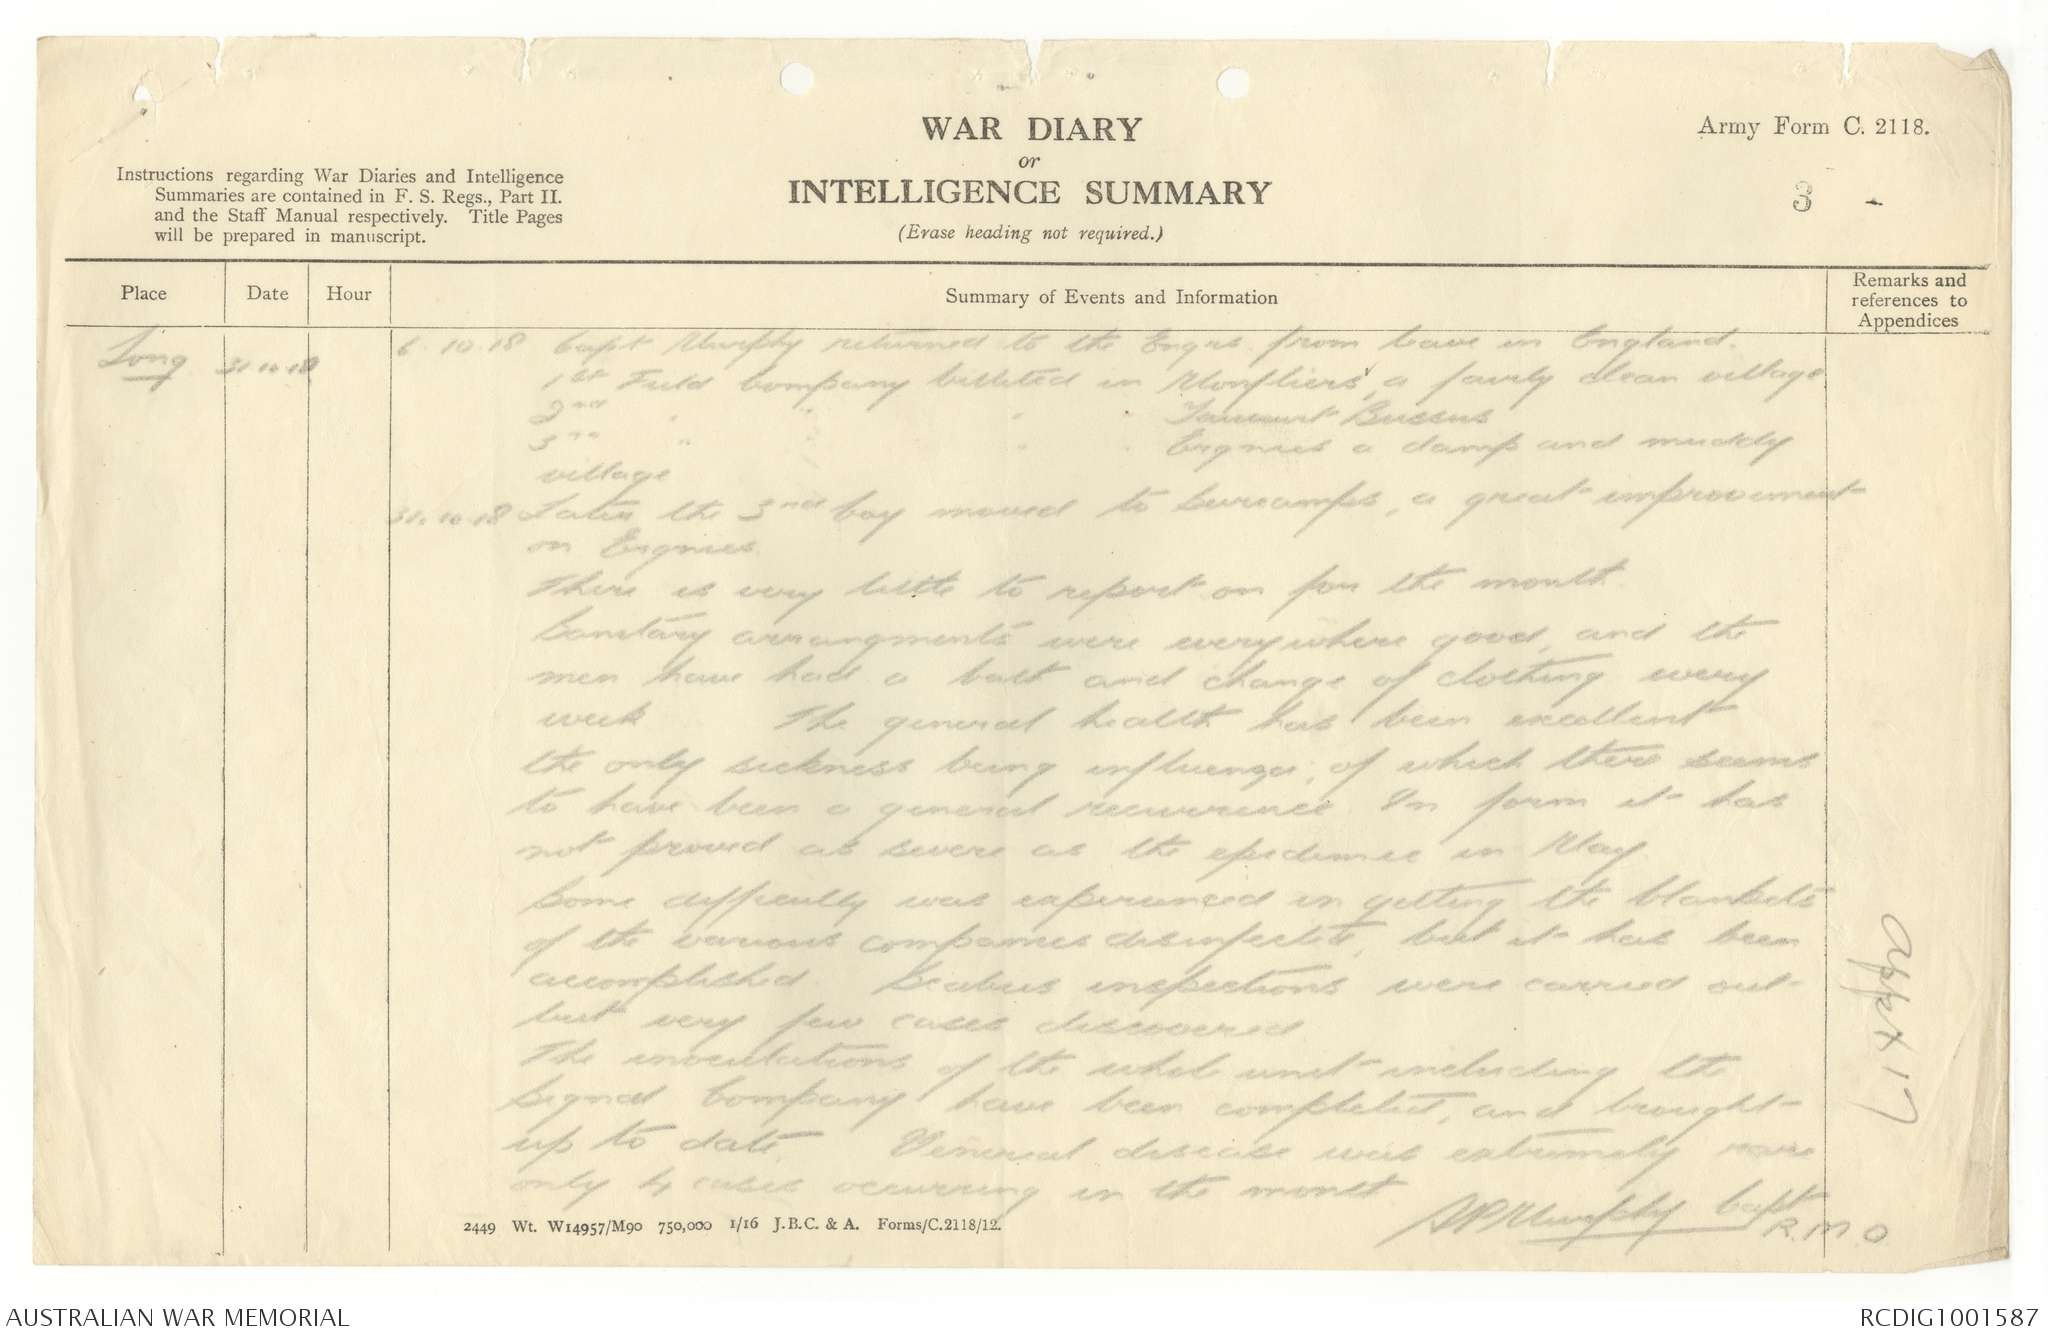 WAR DIARY
or
INTELLIGENCE SUMMARY
(Erase heading not required.)
Army Form C. 2118.
3 -
Instructions regarding War Diaries and Intelligence
Summaries are contained in F. S. Regs., Part II.
and the Staff Manual respectively. Title Pages
will be prepared in manuscript.
Place
Date
Hour
Summary of Events and Information
Remarks and
references to
Appendices
Long 31.10.18
6.10.18 Capt Murphy returned to the Engrs. from leave in England.
1st Field Company billeted in Monfliers, a fairly clean village
2nd " " " " Bussus
3rd " " " " Ergnies a damp and muddy
village
31.10.18 Later the 3rd Coy moved to Surcamps, a great improvement
on Ergnies.
There is very little to report on for the month.
Sanitary arrangments were everywhere good, and the
men have had a bath and change of clothing every
week The general health has been excellent
the only sickness being influenza, of which there seems
to have been a general recurrence. In form it has
not proved as severe as the epidemic in May.
Some difficulty was experienced in getting the blankets
of the various companies disinfected, but it has been
accomplished. Scabies inspections were carried out
but very few cases discovered
The inoculations of the whole unit including the
Signal Company have been completed, and brought
up to date. Venereal disease was extremely rare
only 4 cases occurring in the month
A P Murphy Capt
R.M.O
Appx 17
2449 Wt. W14957/M90 750,000 1/16 J.B.C. & A. Forms/C.2118/12.
AUSTRALIAN WAR MEMORIAL
RCDIG1001587